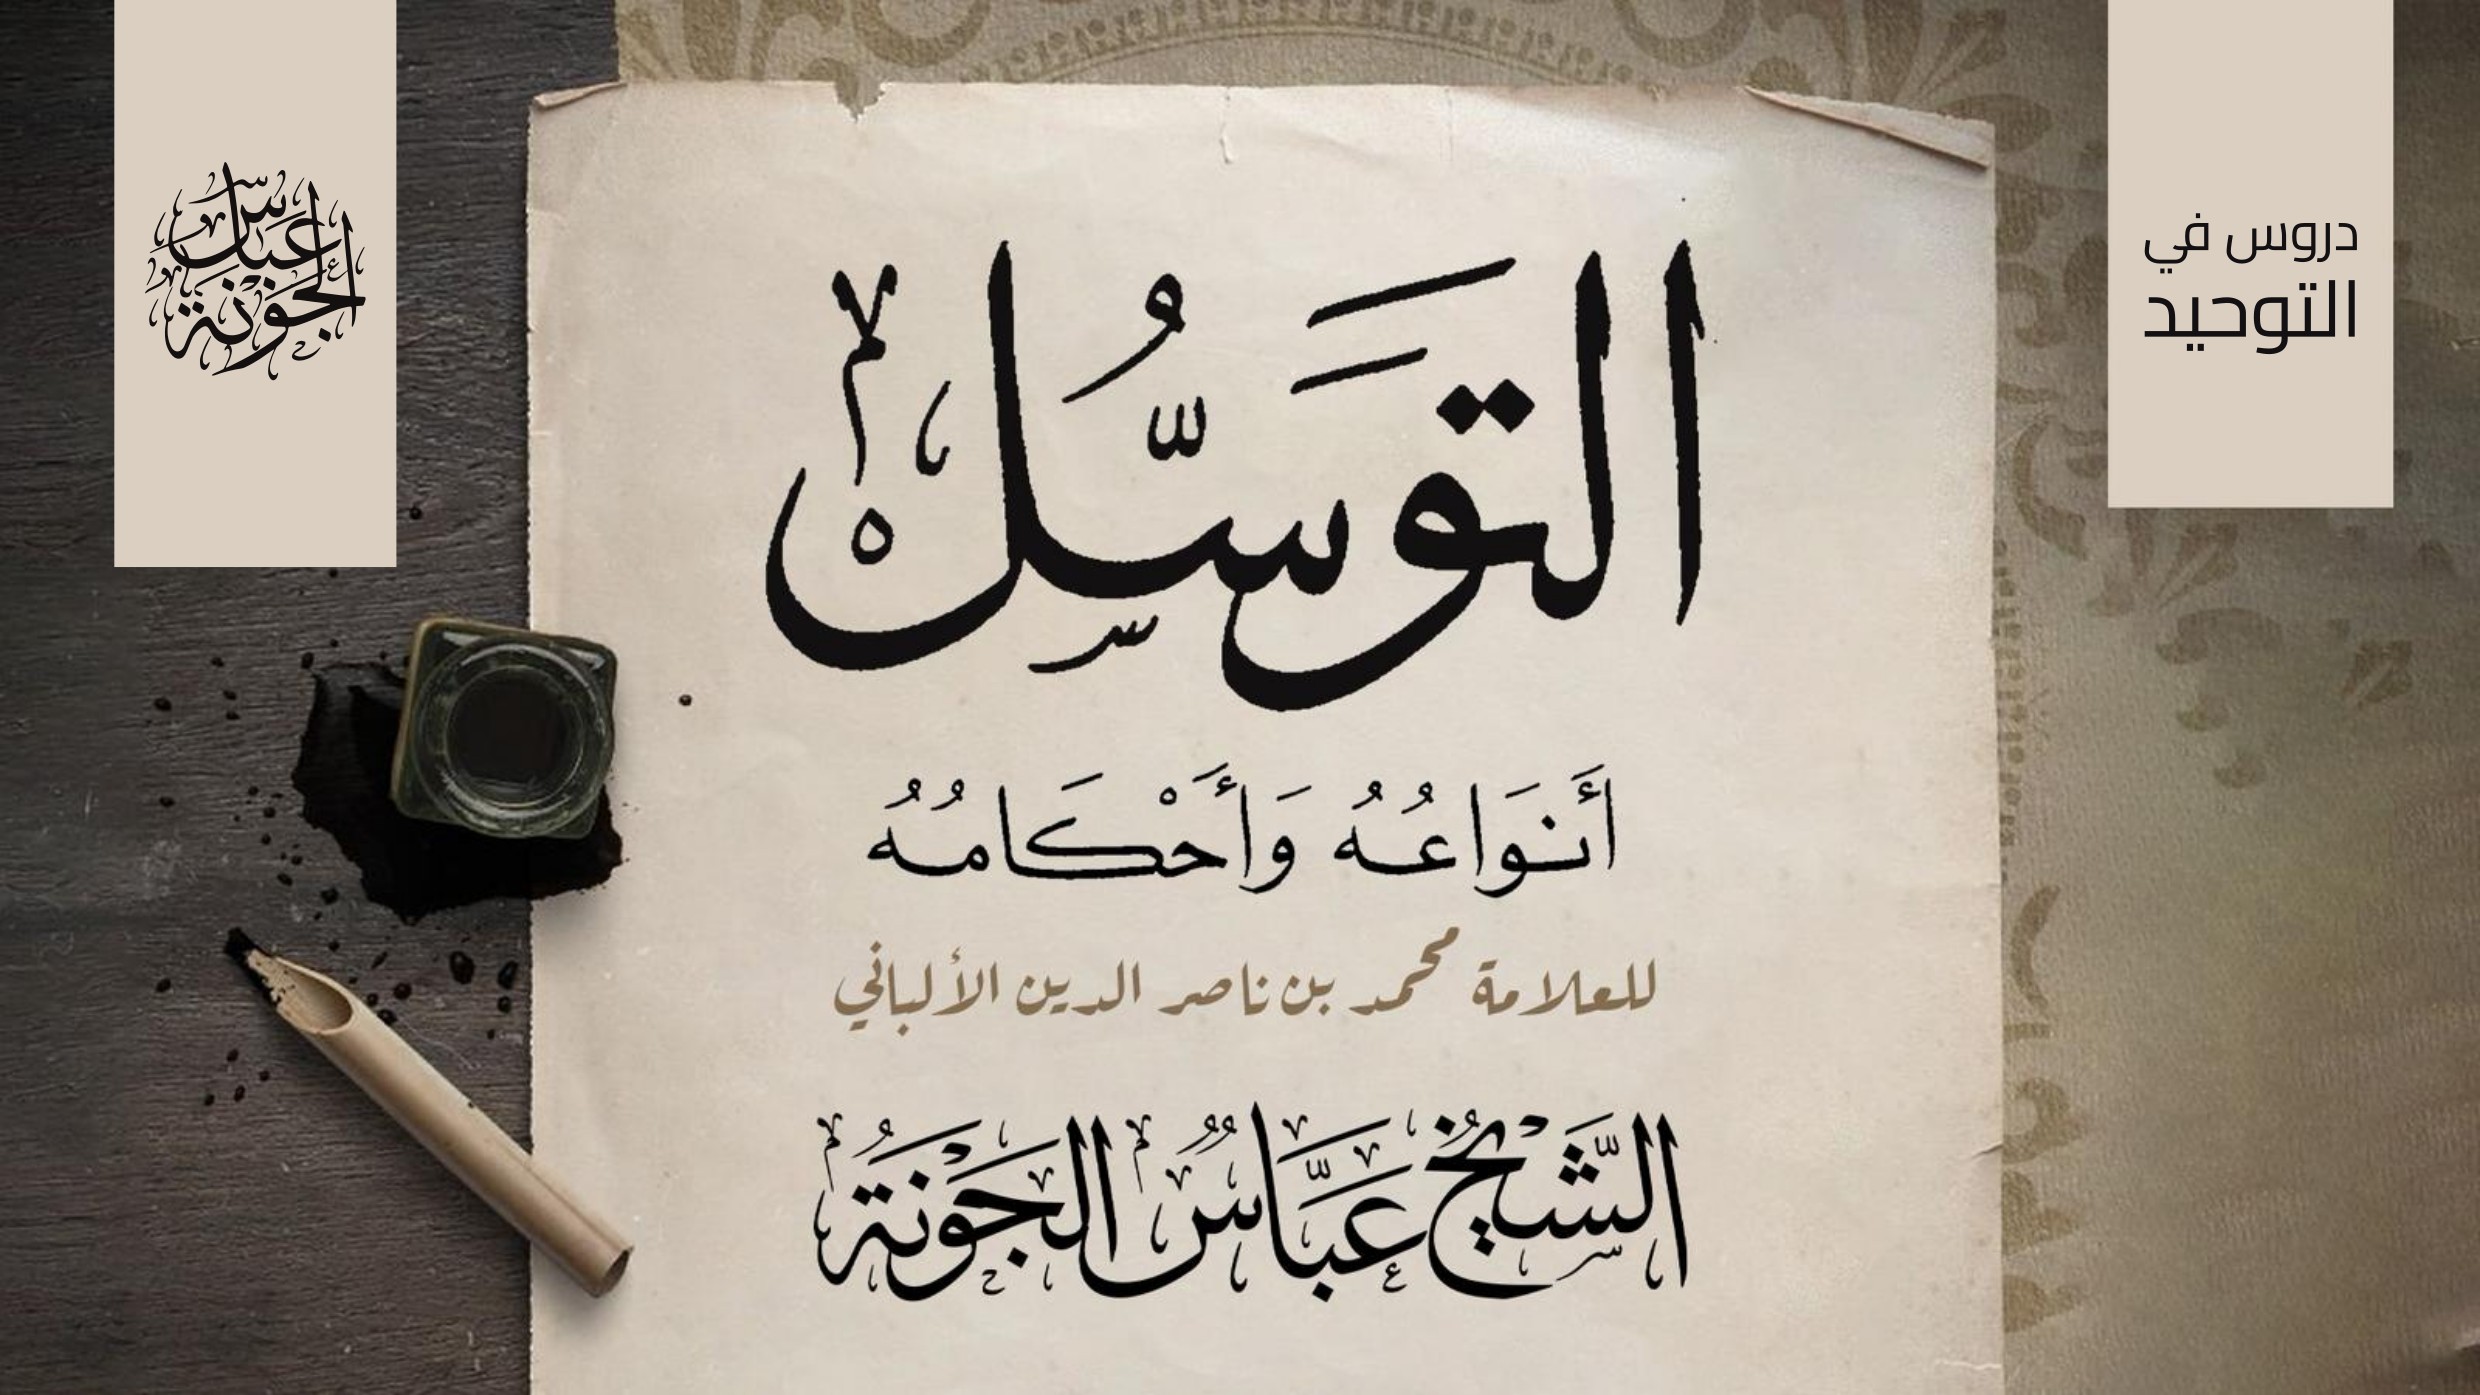 دروس في
التوحيد
عباس
الجونة
التَّوَسُّلُ
أَنْوَاعُهُ وَأَحْكَامُهُ
للعلامة محمد بن ناصر الدين الألباني
الشَّيْخُ عَبَّاسُ الجَوْنَةُ